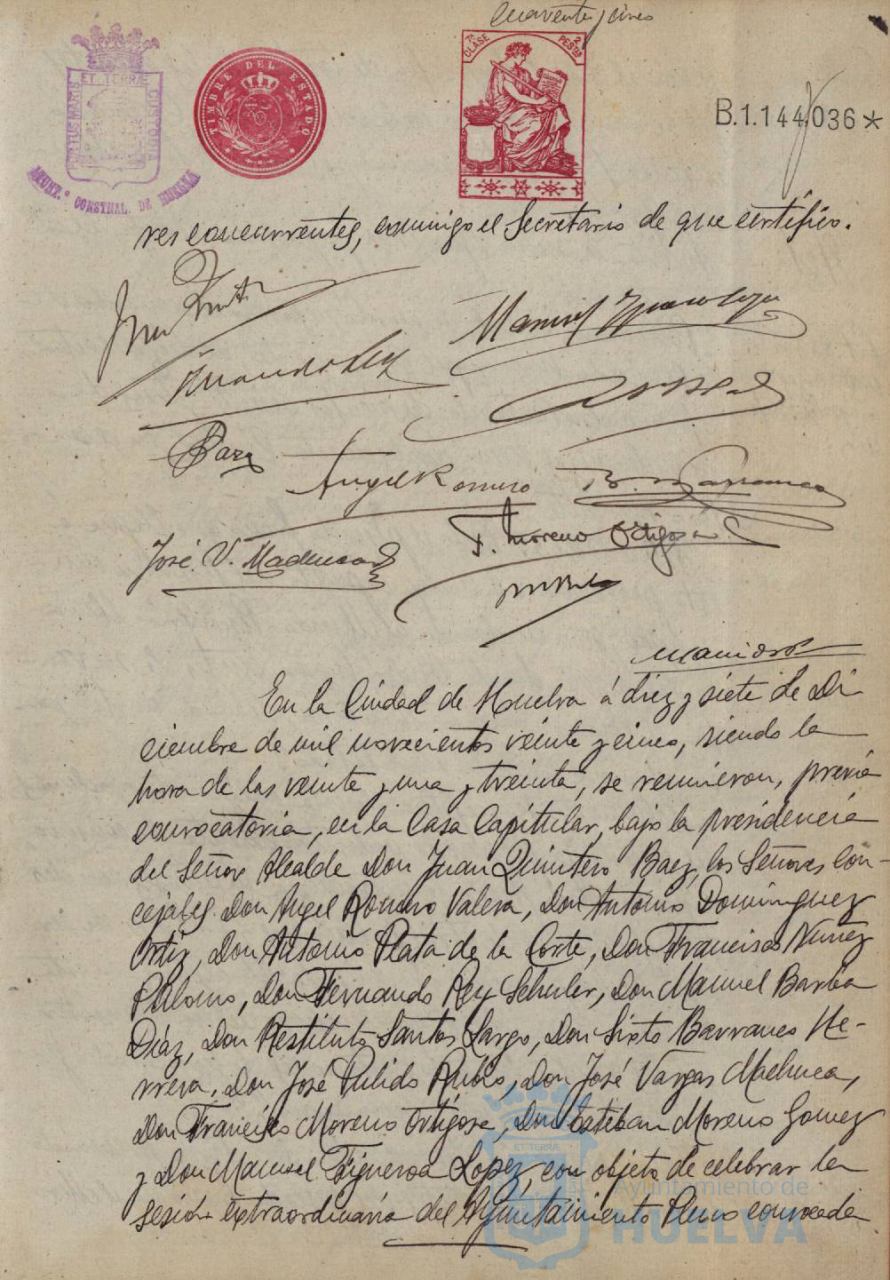 Cuarenta y cinco
PORTUS MARIS ET TERRÆ CUSTODIA
AYUNT.º CONSTNAL. DE HUELVA
TIMBRE DEL ESTADO
7ª CLASE
PESTAS 2
B.1.144,036*
res concurrentes, conmigo el Secretario de que certifico.
Manuel Figueroa Lopez
Fernando Rey
Barba
Angel Romero
José V. Machuca
F. Moreno Ortigosa
En la Ciudad de Huelva á diez y siete de Di
ciembre de mil novecientos veinte y cinco, siendo la
hora de las veinte y una y treinta, se reunieron, previa
convocatoria, en la Casa Capitular, bajo la presidencia
del Señor Alcalde Don Juan Quintero Baez, los Señores Con-
cejales Don Angel Romero Valera, Don Antonio Dominguez
Ortiz, Don Antonio Plata de la Corte, Don Francisco Nuñez
Palomo, Don Fernando Rey Schuler, Don Manuel Barba
Diáz, Don Restituto Santos Largo, Don Sixto Barranco He-
rrera, Don José Pulido Rubio, Don José Vargas Machuca,
Don Francisco Moreno Ortigosa, Don Esteban Moreno Gomez
y Don Manuel Figueroa Lopez, con objeto de celebrar la
sesión extraordinaria del Ayuntamiento Pleno convocada
ET TERRÆ
Ayuntamiento de
HUELVA